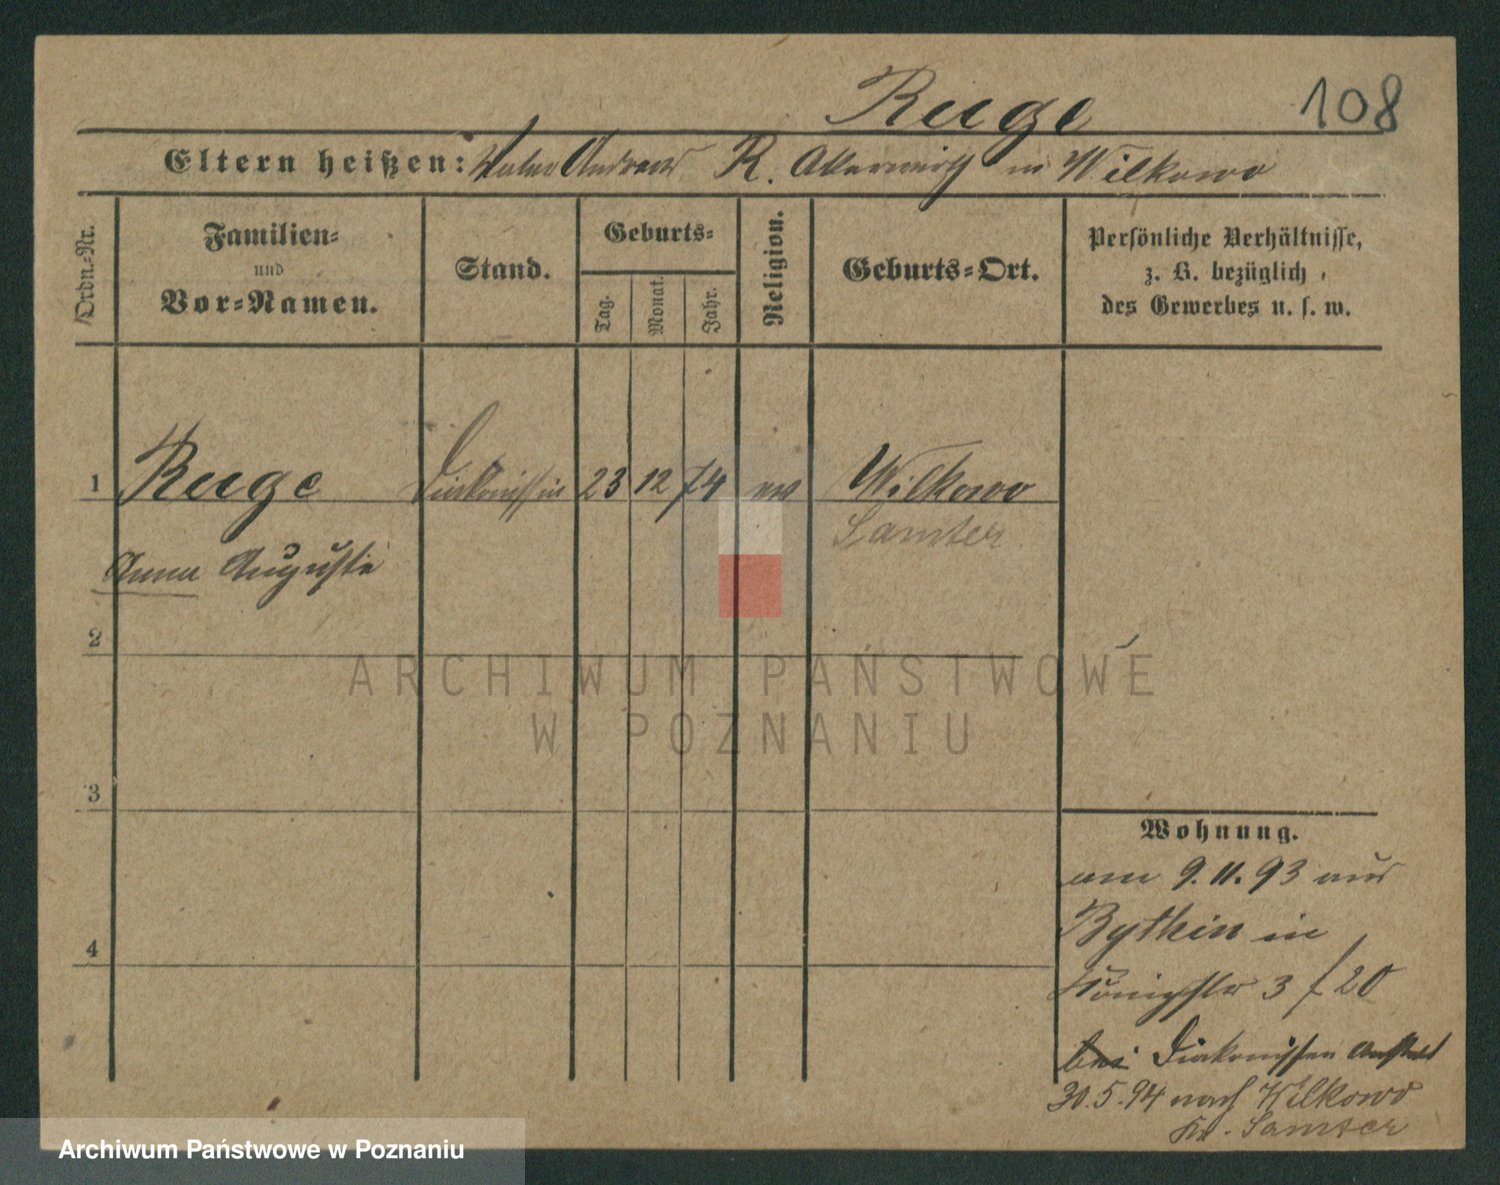 Ruge 108
Eltern heißen: Vater Andreas R. Ackerwirth in Wilkowo
Ordn.-Nr.
Familien-
und
Vor-Namen.
Stand.
Geburts-
Tag.
Monat.
Jahr.
Religion.
Geburts-Ort.
Persönliche Verhältnisse,
z. B. bezüglich
des Gewerbes u. s. w.
1 Ruge Diakonissin 23 12 74 ev Wilkowo
Samter
Anna Auguste
2
3
4
Wohnung.
am 9.11.93 aus
Bythin in
Königstr 3 f 20
bei Diakonissen Anstalt
30.5.94 nach Wilkowo
Kr. Samter
ARCHIWUM PAŃSTWOWE
W POZNANIU
Archiwum Państwowe w Poznaniu